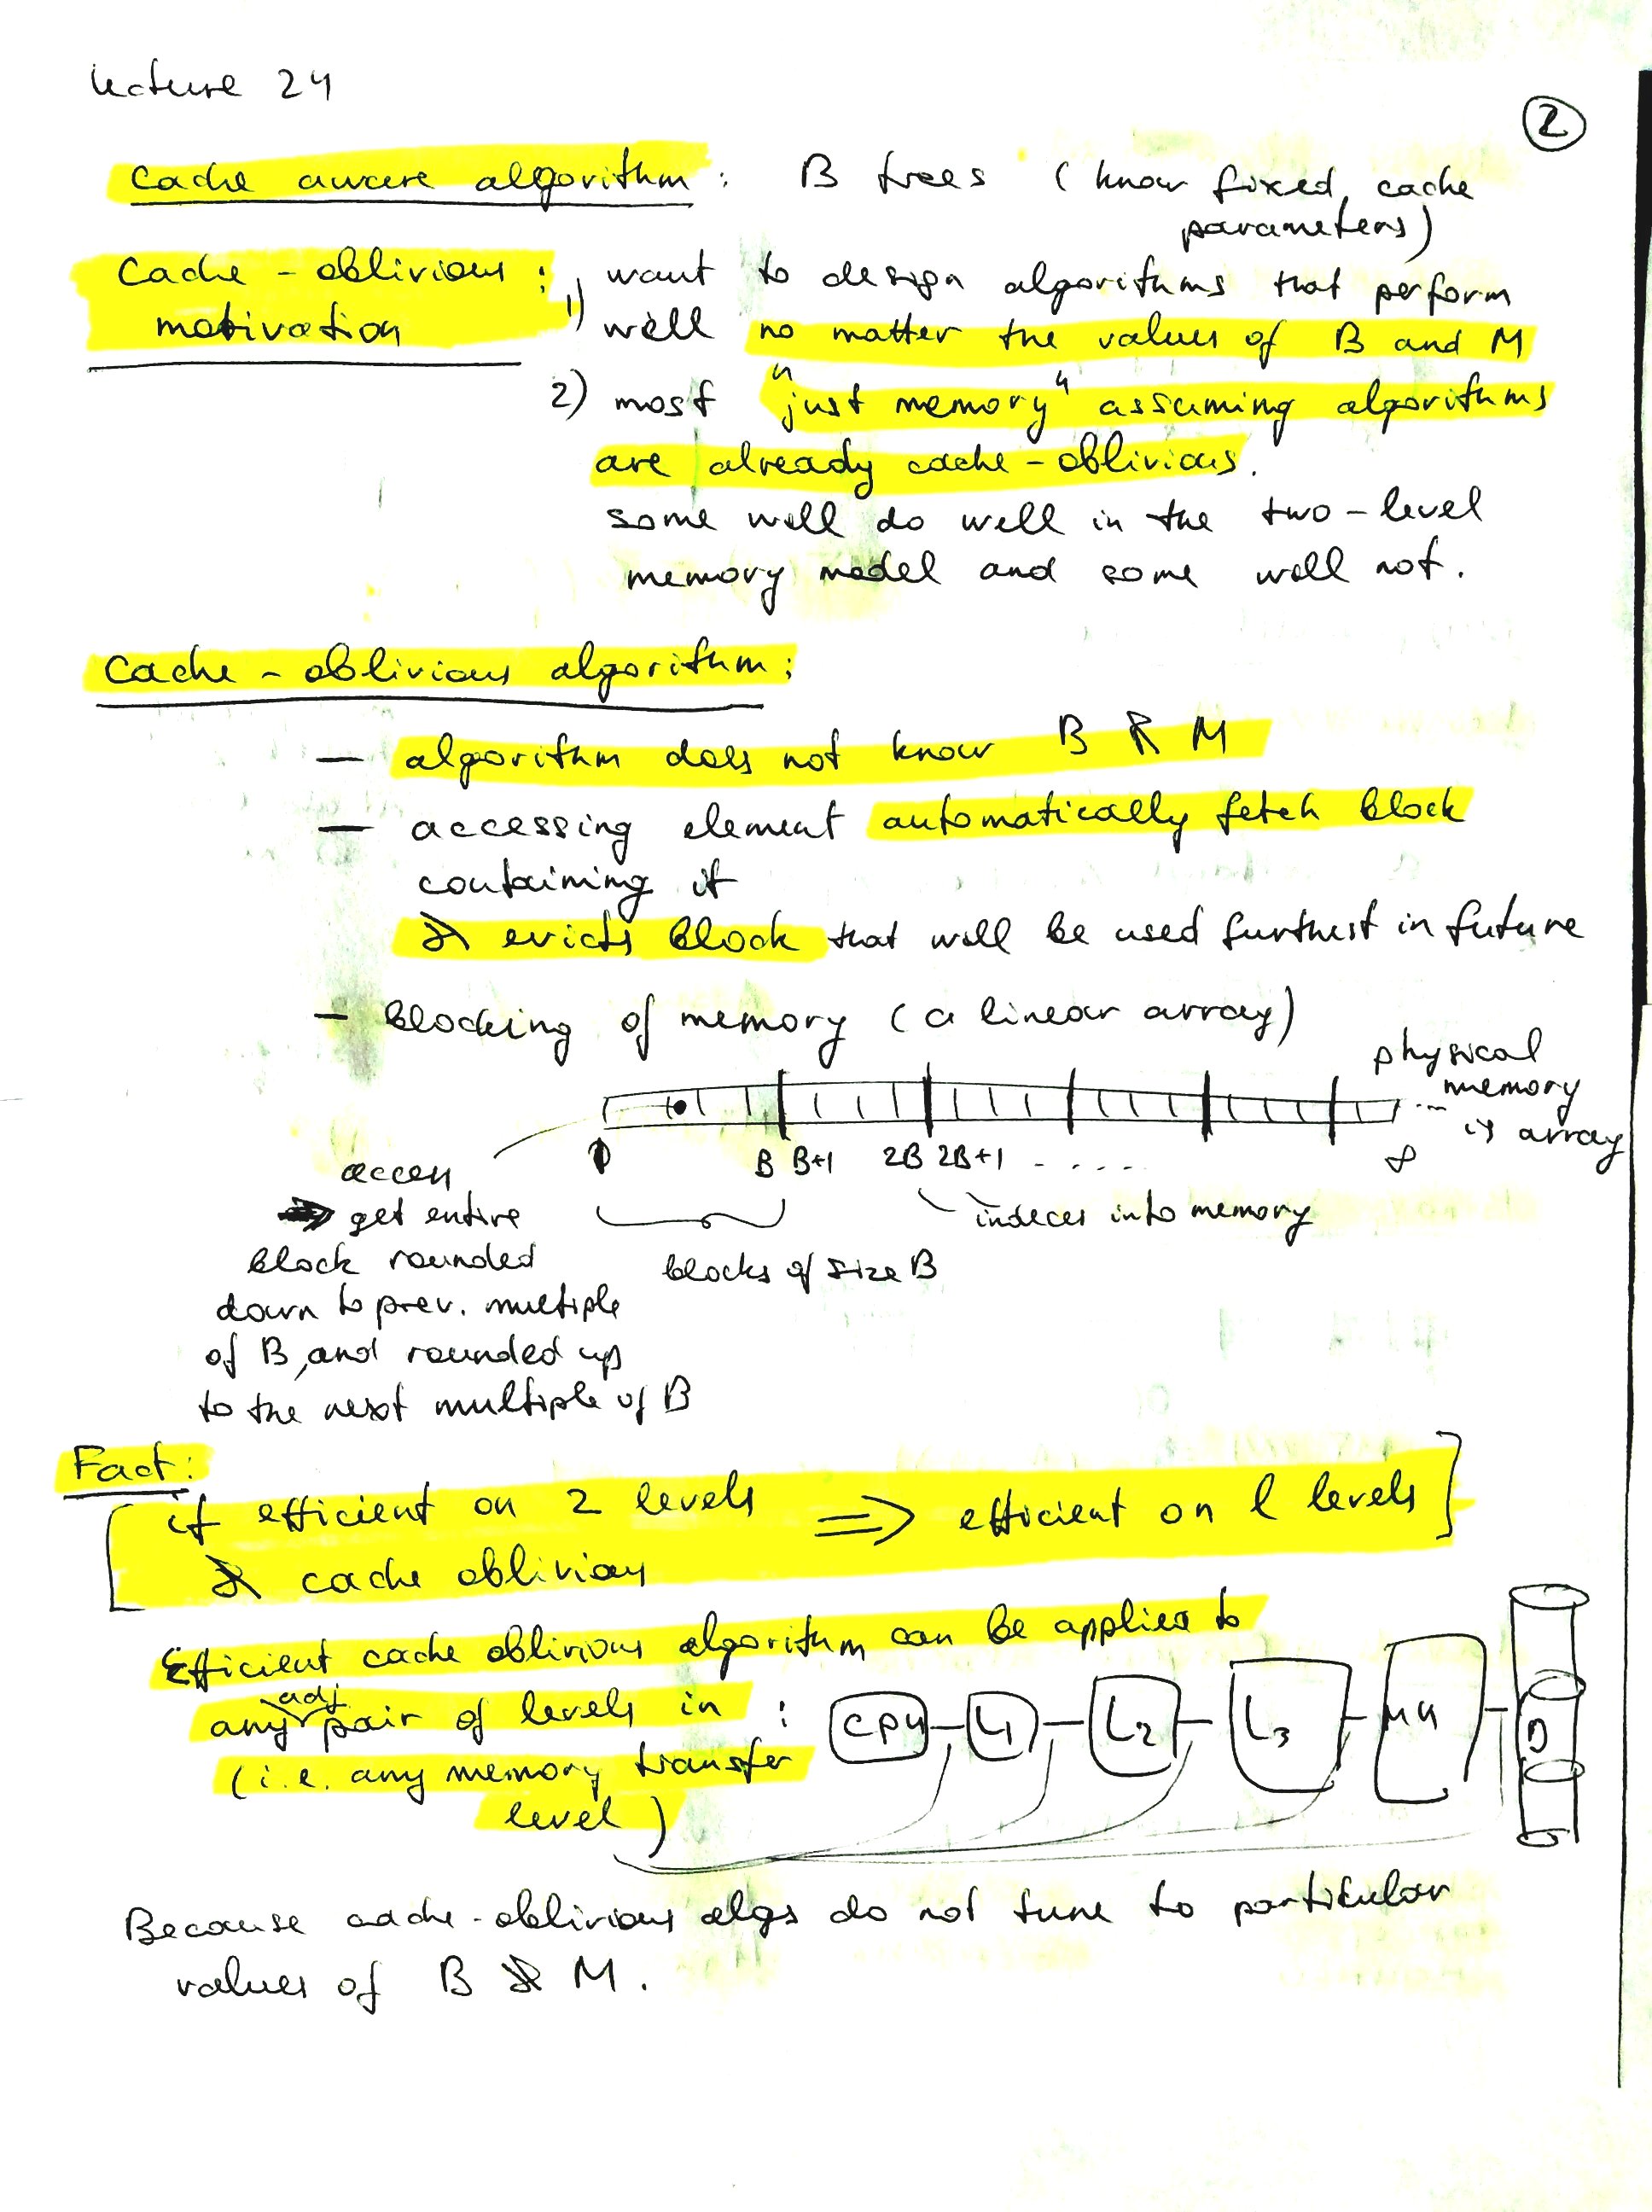 Lecture 24
2
Cache aware algorithm: B trees (know fixed cache
parameters)
Cache-oblivious: 1) want to design algorithms that perform
motivation well no matter the values of B and M
2) most "just memory" assuming algorithms
are already cache-oblivious.
some will do well in the two-level
memory model and some will not.
Cache-oblivious algorithm:
— algorithm does not know B & M
— accessing element automatically fetch block
containing it
& evicts block that will be used furthest in future
- Blocking of memory (a linear array)
physical
memory
is array
B B+1 2B 2B+1 .....
access
⇒ get entire
indeces into memory
block rounded
blocks of size B
down to prev. multiple
of B, and rounded up
to the next multiple of B
Fact:
[if efficient on 2 levels ⇒ efficient on l levels]
& cache oblivious
Efficient cache oblivious algorithm can be applied to
any adj pair of levels in : CPU L1 L2 L3 MM D
(i.e. any memory transfer
level)
Because cache-oblivious algs do not tune to particular
values of B & M.